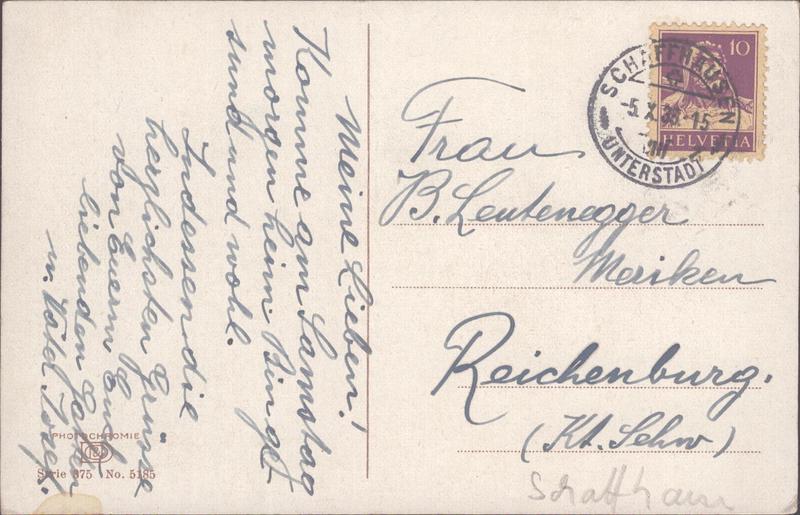 Meine Lieben!
Komme am Samstag
morgen heim. Bin ge-
sund und wohl.
Indessen die
herzlichsten Grüsse
von Euerm Euch
liebenden Gatten
u. Vater Josef.
PHOTOCHROMIE
Serie 375 No. 5185
10
HELVETIA
SCHAFFHAUSEN
-5.X.
15
UNTERSTADT
Frau
B. Leutenegger
Meriken
Reichenburg.
(Kt. Schw)
Schaffhausen